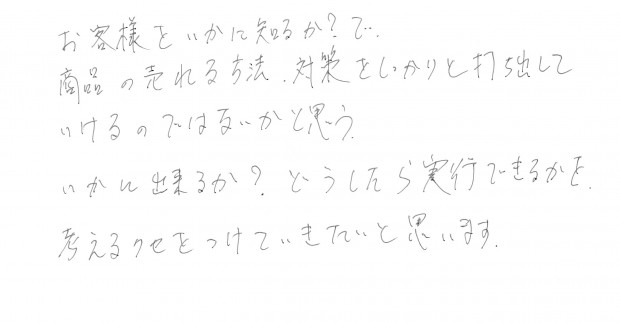 お客様をいかに知るか?で、
商品の売れる方法、対策をしっかりと打ち出して
いけるのではないかと思う。
いかに出来るか?どうしたら実行できるかを、
考えるクセをつけていきたいと思います。